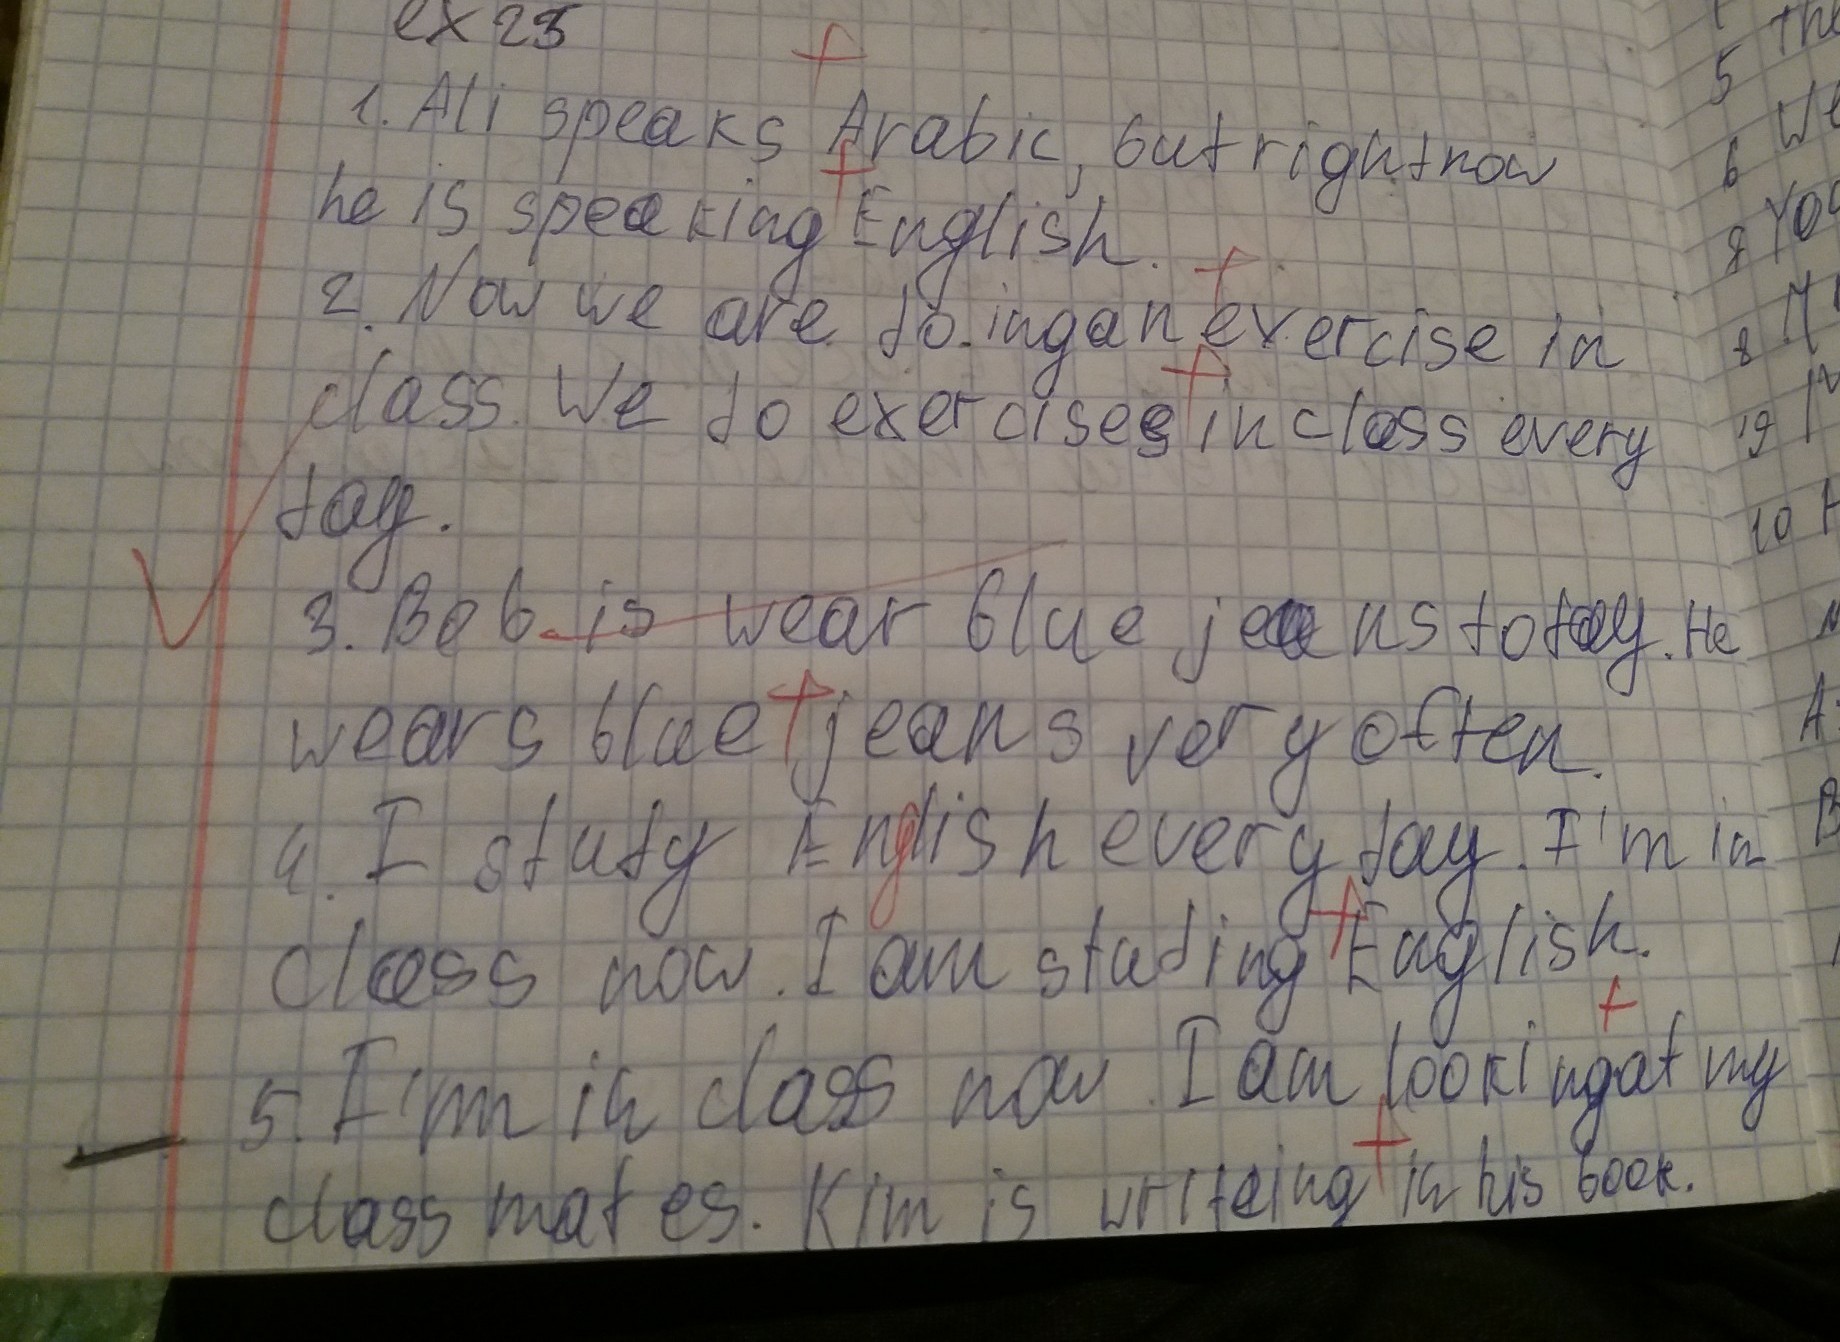 ex 23
1. Ali speaks Arabic, but right now
he is speaking English.
2. Now we are doing an exercise in
class. We do exercises in class every
day.
3. Bob is wear blue jeans today. He
wears blue jeans very often.
4. I study English every day. I'm in
class now. I am studing English.
5. I'm in class now. I am looking at my
classmates. Kim is writeing in his book.
5 The
6 We
8 You
8 M
19
10 H
A:
B